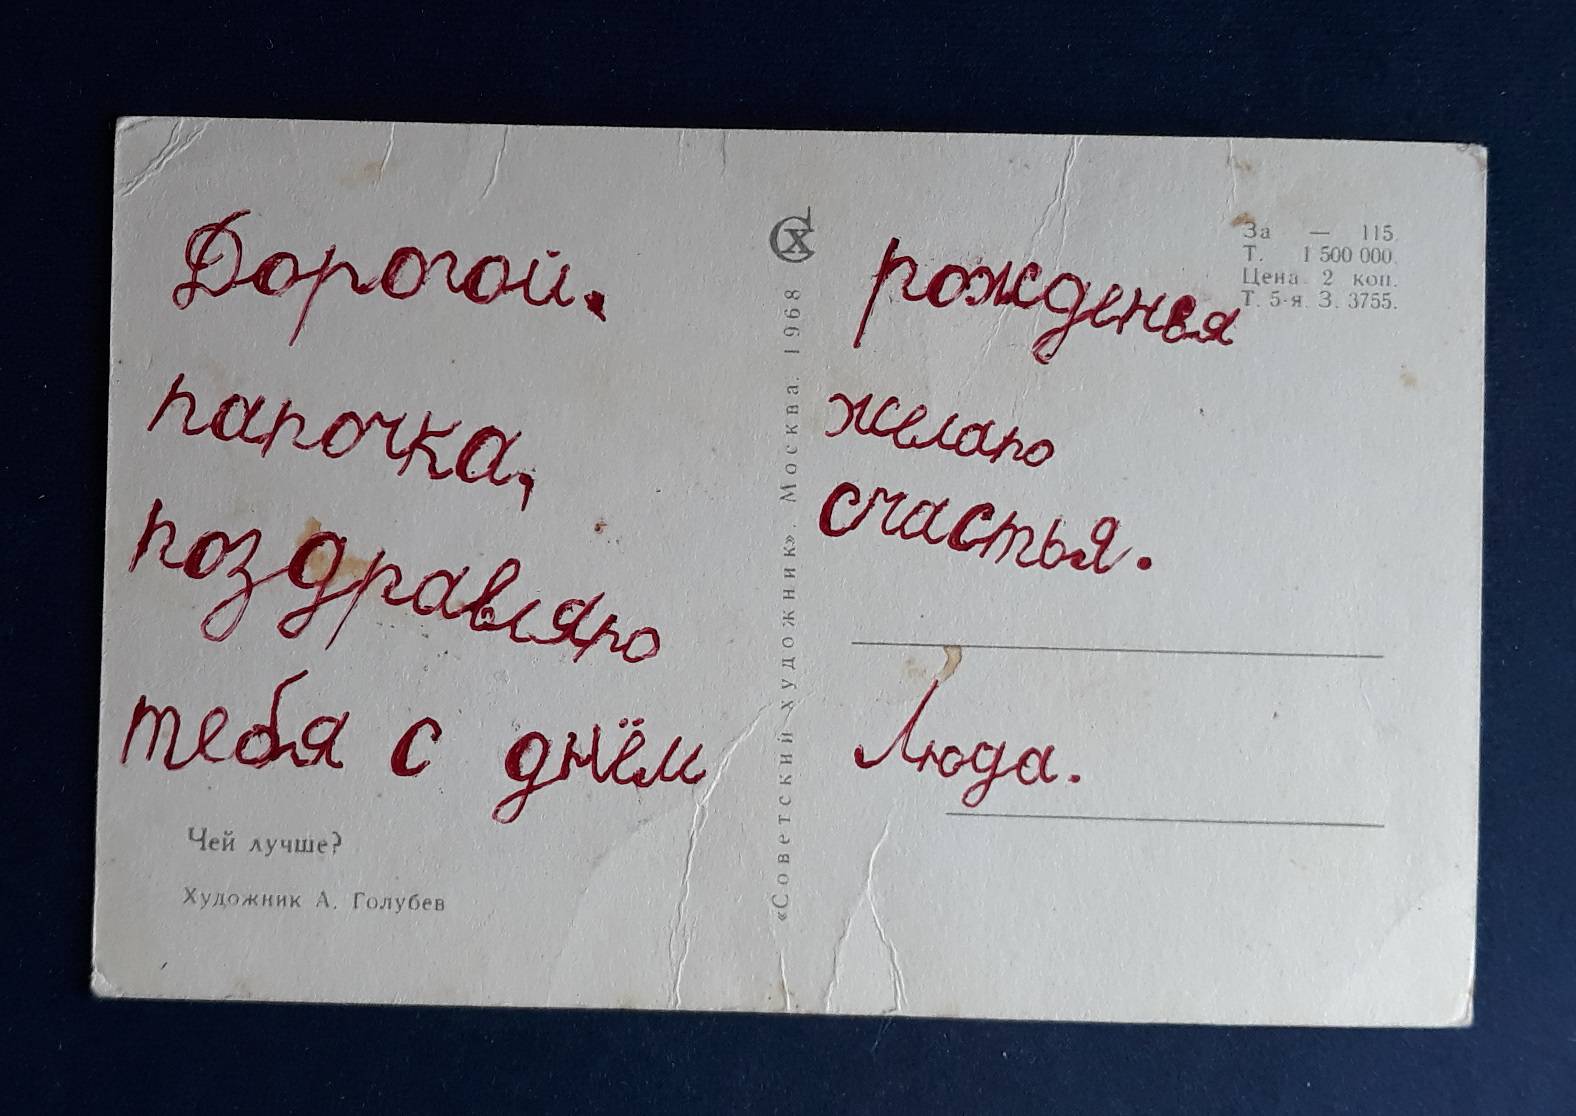 Дорогой.
папочка,
поздравляю
тебя с днём
Чей лучше?
Художник А. Голубев
«Советский художник». Москва. 1968
СХ
За — 115.
Т. 1 500 000.
Цена 2 коп.
Т. 5-я. З. 3755.
рожденья
желаю
счастья.
Люда.